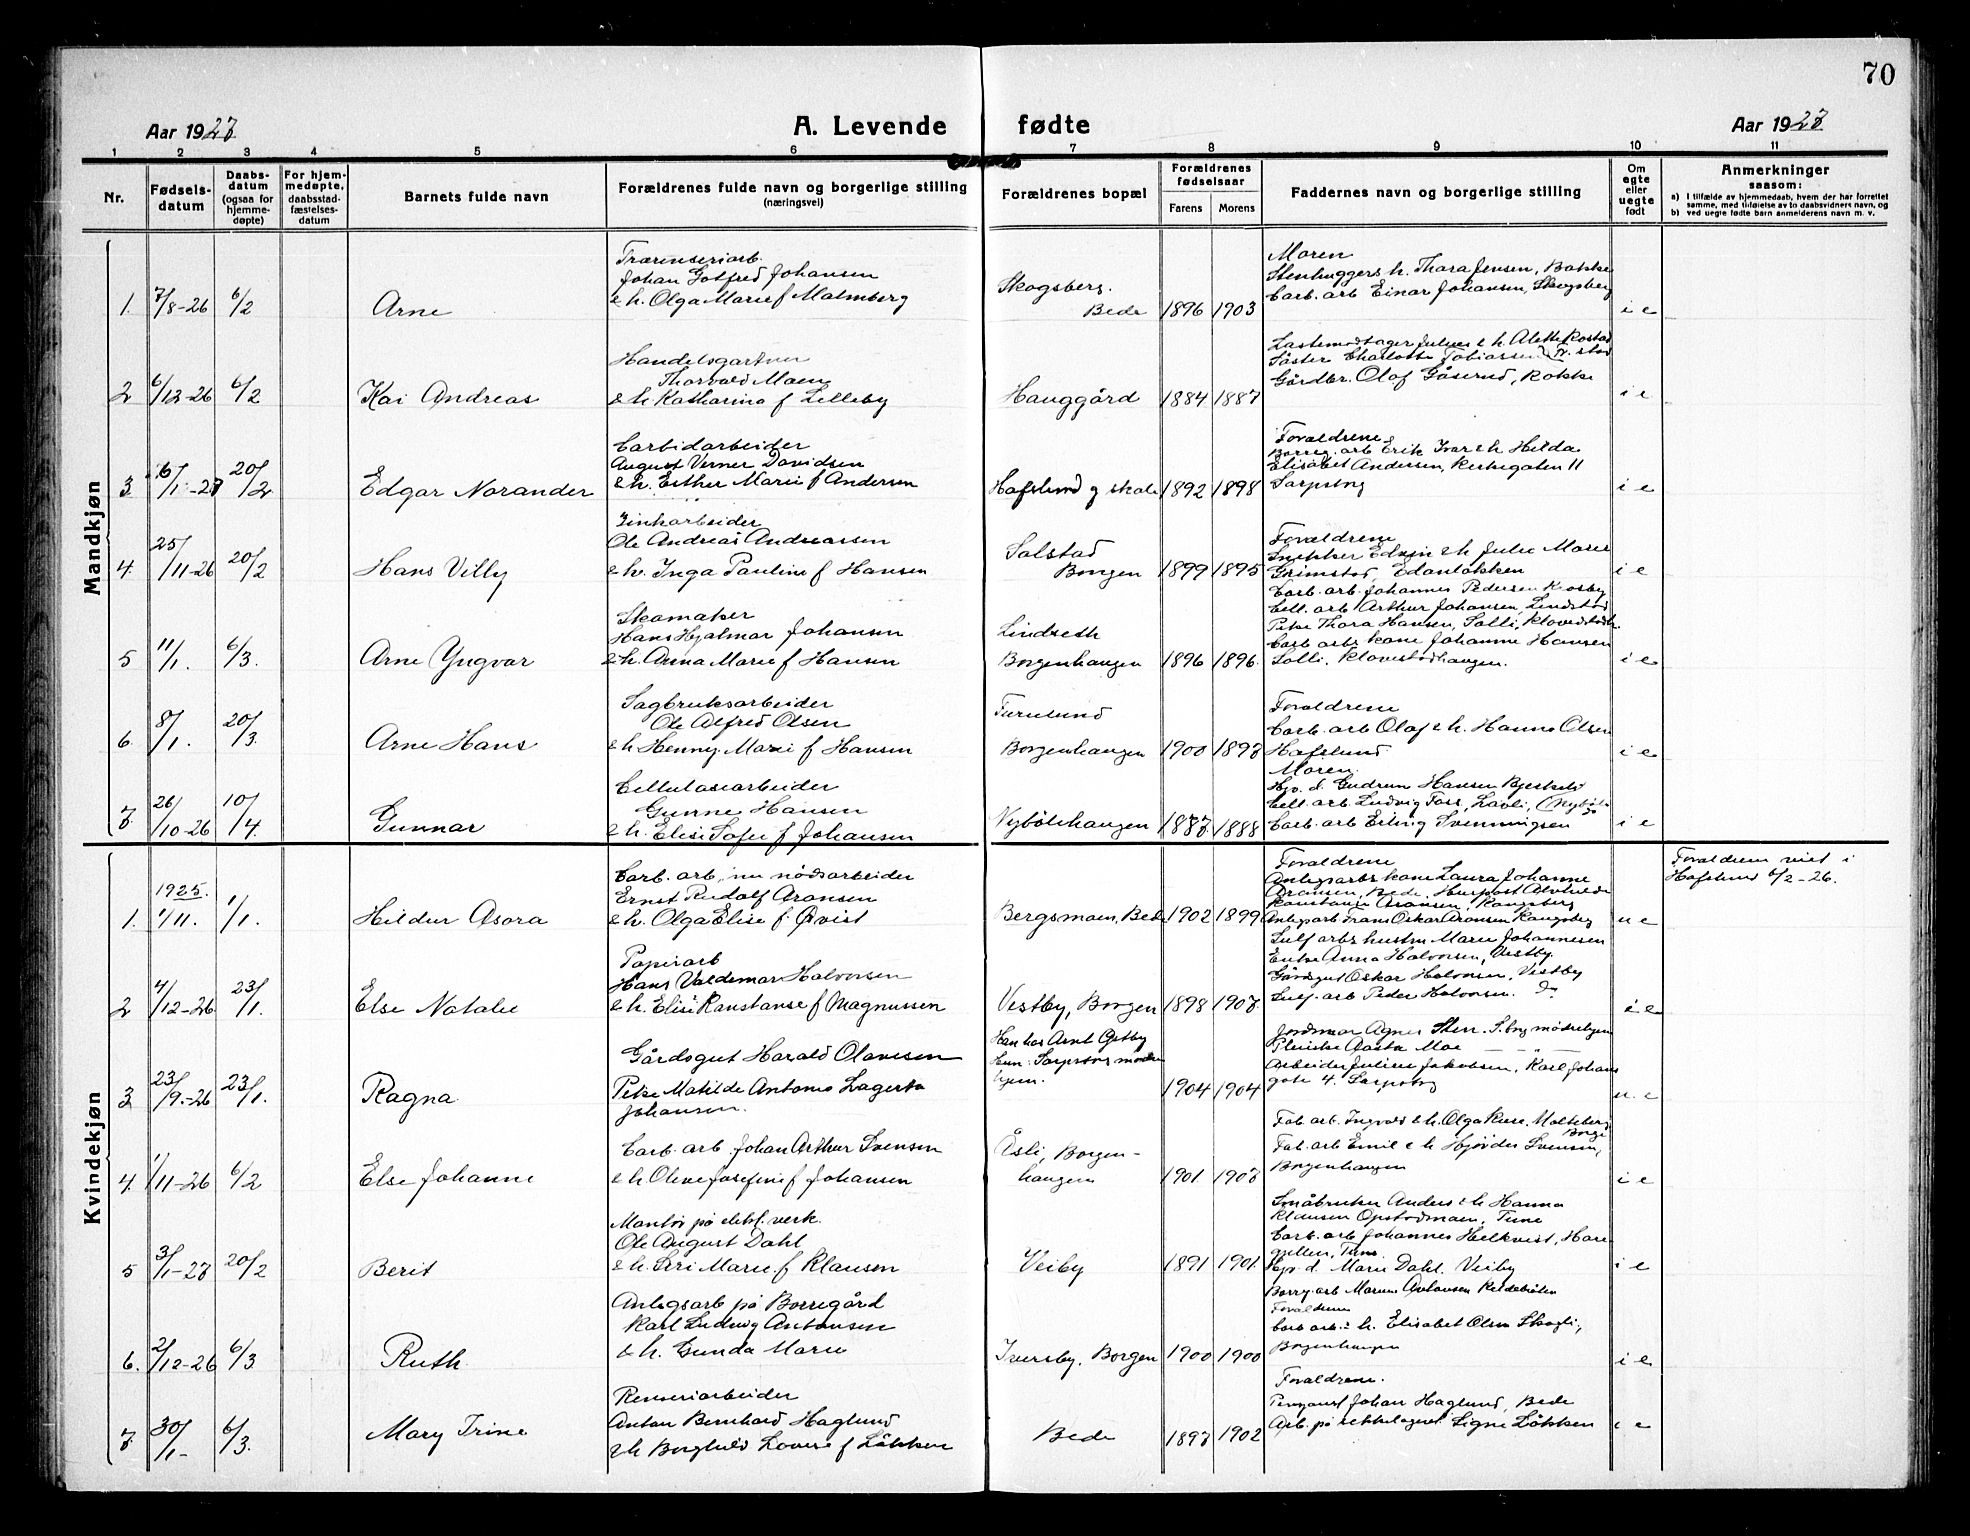 70
Aar 1927
A. Levende fødte
Aar 1927
1 2 3 4 5 6 7 8 9 10 11
Nr.
Fødsels-datum
Daabs-datum (ogsaa for hjemme-døpte)
For hjem-medøpte, daabsstad-fæstelses-datum
Barnets fulde navn
Forældrenes fulde navn og borgerlige stilling (næringsvei)
Forældrenes bopæl
Forældrenes fødselsaar
Farens
Morens
Faddernes navn og borgerlige stilling
Om egte eller uegte født
Anmerkninger saasom:
a) I tilfælde av hjemmedaab, hvem der har forrettet samme, med tilføielse av to daabsvidners navn, og
b) ved uegte fødte barn anmelderens navn m. v.
Mandkjøn
1. 7/8-26 6/2 Arne
Johan Gotfred Johansen
& h. Olga Marie f Malmberg
Skogsberg. Bede 1896 1903
Moren
Stenhuggers h. Thora Jensen, Bakke
Carb. arb Einar Johansen, Skogsberg
i e
2 6/12-26 6/2 Kai Andreas
Handelsgartner
Thorvald Moen
& h Katharina f Lilleby
Hauggård 1884 1887
Gårdbr. Olaf Gåserud, Rokke
i e
3 16/1-27 20/2 Edgar Norander
Carbidarbeider
August Verner Davidsen
& h. Esther Marie f Andersen
Hafslund g skole 1892 1898
Forældrene
Borreg. arb Erik Ivar & h Hilda
Elisabet Andersen, Kirkegaten 11
Sarpsborg
i e
4. 25/11-26 20/2 Hans Villy
Zinkarbeider
Ole Andreas Andreassen
& h. Inga Pauline f Hansen
Solstad Borgen 1899 1895
Forældrene
Snekker Edvin & h Julie Marie
Grimstad, Edenløkken
i e
5 11/1. 6/3. Arne Yngvar
Skomaker
Hans Hjalmar Johansen
& h. Anna Marie f Hansen
Lindseth Borgenhaugen 1896 1896.
Carb. arb. Johannes Pedersen Kosby
Cell. arb Arthur Johansen, Lindstad
Pike Thora Hansen, Solli,
Carb arbs kone Johanne Hansen
Solli, Klavestadhaugen.
i e
6 8/1. 20/3. Arne Hans
Sagbruksarbeider
Ole Alfred Olsen
& h Henny Marie f Hansen
Furulund Borgenhaugen 1900 1897
Forældrene
Carb. arb Olaf & h. Hanna Olsen
Hafslund
i e
7 26/10-26 10/4. Gunnar
Cellulosearbeider
Gunne Hansen
& h. Elise Sofie f Johansen
Nybølehaugen 1887. 1888
Moren.
Hjv. d. Gudrun Hansen
Cell. arb Ludvig Foss,
Carb. arb Erling Svenningsen
i e
Kvindekjøn
1. 1925. 1/11. 1/1. Hildur Asora
Carb. arb, nu nødsarbeider
Ernst Rudolf Aronsen
& h. Olga Elise f. Qvist
Bergsmoen, Bede 1902 1899
Forældrene
Anlegsarbs kone Laura Johanne
Aronsen, Bede,
Konstanse Aronsen, Kongsberg
Anlegsarb Frans Oskar Aronsen Kongsberg
u e
Forældrene viet i
Hafslund 6/2-26.
2 4/12-26 23/1. Else Natalie
Papirarb
Hans Valdemar Halvorsen
& h. Elise Konstanse f Magnussen
Vestby, Borgen 1898 1907
Sulf arbs hustru Marie Johannesen
Enke Anna Halvorsen, Vestby
Gårdsgut Oskar Halvorsen, Vestby
Sulf. arb Peder Halvorsen. do
i e
3 23/9.-26 23/1. Ragna
Gårdsgut Harald Olavesen
Pike Matilde Antonie Lagerta
Johansen.
Hun: Sarpsborg mødre
hjem.
1904 1904
Jordmor Agnes Sten. S.borg mødrehjem
Pleierske Aasta Moe
Arbeider Julius Jakobsen, Karl Johans
gate 4. Sarpsborg
u. e
4. 1/11-26 6/2 Else Johanne
Carb. arb. Johan Arthur Svensen
& h Oline Josefine f Johansen
Åsli, Borgen-
haugen 1901 1907
Fab arb. Ingvald & h. Olga Kure, Molteberg
Borge
Fab. arb Emil & h Hjørdis Svensen,
Borgenhaugen
i e
5 3/1-27 20/2 Berit
Montør på elekt. verk.
Ole August Dahl
& h. Siri Marie f Klausen
Veiby 1891 1901.
Småbruker Anders & h Hanna
Klausen Opstadmoen, Tune
Carb. arb Johannes Helkvist, Hare
gyllen, Tune.
Hjv. d. Marie Dahl. Veiby
i e
6. 2/12-26 6/3 Ruth
Anlegsarb på Borregård
Karl Ludvig Antonsen
& h. Gunda Marie
Iversby, Borgen 1900 1900
Forældrene
h. Elisabet Olsen Skogli,
Borgenhaugen
i e
7 30/1- 6/3. Mary Irine
Renseriarbeider
Anton Bernhard Haglund
& h Borghild Lovise f Løkken
Bede 1897 1902
Forældrene.
Johan Haglund, Bede
Arb. på Signe Løkken
i e